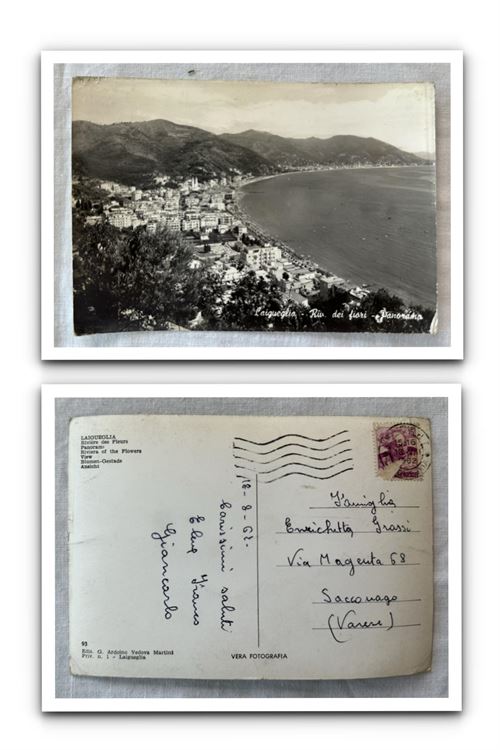 Laigueglia - Riv. dei fiori - Panorama
LAIGUEGLIA
Rivière des Fleurs
Panorama
Riviera of the Flowers
View
Blumen-Gestade
Ansicht
18-8-62.
Carissimi saluti
Franco
Giancarlo
Famiglia
Enrichetta Grassi
Via Magenta 68
Sacconago
(Varese)
93
Ediz. G. Ardoino Vedova Martini
Priv. n. 1 - Laigueglia
VERA FOTOGRAFIA